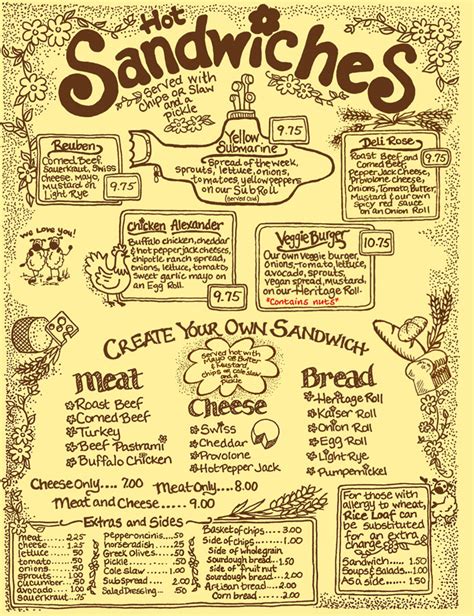 Hot
Sandwiches
Served with
Chips or Slaw
and a
Pickle
Reuben
Corned Beef,
Sauerkraut, Swiss
Cheese, Mayo,
Mustard on
Light Rye
9.75
Yellow
Submarine
9.75
Spread of the week,
sprouts, lettuce, onions,
tomatoes, yellow peppers
on our Sub Roll
(served cold)
Deli Rose
Roast Beef and
Corned Beef,
Pepper Jack Cheese,
Provolone Cheese,
Onions, Tomato, Butter,
Mustard & our own
spicy red sauce
on an Onion Roll
9.75
We Love You!
Chicken Alexander
Buffalo chicken, cheddar
& hot pepper jack cheeses,
chipotle ranch spread,
onions, lettuce, tomato,
Sweet garlic mayo on
an Egg Roll.
9.75
Veggie Burger
10.75
Our own Veggie burger,
Onions, Tomato, lettuce,
avocado, sprouts,
vegan spread, Mustard,
on our Heritage Roll.
*Contains nuts*
Create Your Own Sandwich
Served hot with
Mayo or Butter
& Mustard,
chips or cole slaw
and a
pickle
Meat
Roast Beef
Corned Beef
Turkey
Beef Pastrami
Buffalo Chicken
Cheese
Swiss
Cheddar
Provolone
Hot Pepper Jack
Bread
Heritage Roll
Kaiser Roll
Onion Roll
Egg Roll
Light Rye
Pumpernickel
Cheese Only.... 7.00
Meat Only.... 8.00
Meat and Cheese ........ 9.00
Extras and Sides
meat 2.25
cheese 1.25
lettuce .50
tomato .50
onions .50
sprouts .50
Cucumber .50
avocado 2.00
sauerkraut .75
Pepperoncinis .50
horseradish .25
Greek Olives .50
pickle .50
Cole slaw 1.00
Sub spread 2.00
Salad Dressing .50
Basket of chips .... 3.00
Side of chips ..... 1.00
Side of wholegrain
sourdough bread .... 1.50
side of fruit nut
sourdough bread .. 2.00
Artisan bread ... 2.00
Corn bread ..... 1.50
For those with
allergy to wheat,
Rice Loaf can
be substituted
for an
extra
charge
Sandwich ..... 1.50
Soups & Salads .. 1.00
As a side ...... 1.50